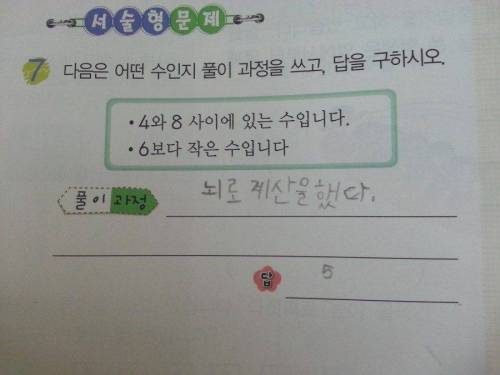 서술형문제
7 다음은 어떤 수인지 풀이 과정을 쓰고, 답을 구하시오.
• 4와 8 사이에 있는 수입니다.
• 6보다 작은 수입니다
풀이과정 뇌로 계산을했다.
답 5